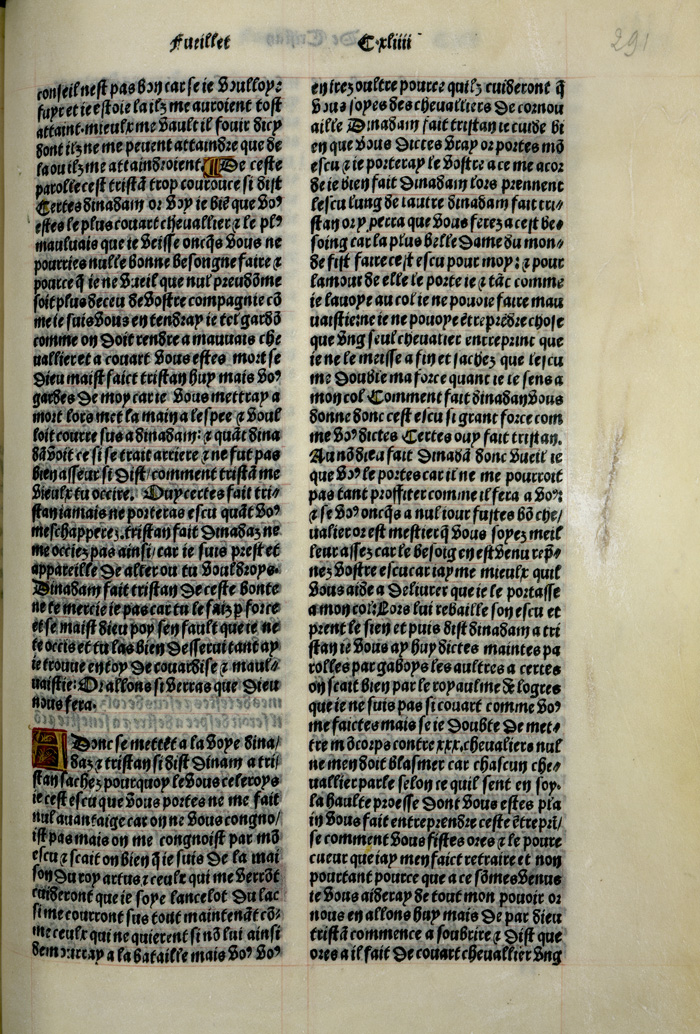 Fueillet C.xliiii 291
conseil nest pas bon car se ie Voulloye
fuyr et ie estoie la ilz me auroient tost
attaint. mieulx me Vault il fouir dicy
dont ilz ne me peuent attaindre que de
la ou ilz me attaindroient ¶ De ceste
parolle cest tristã trop courouce si dist
Certes dinadam or Voy ie biẽ que Vo⁹
estes le plus couart cheuallier ⁊ le pl⁹
mauluais que ie Veisse oncq̃s Vous ne
pourries nulle bonne besongne faire ⁊
pource q̃ ie ne Vueil que nul preudõme
soit plus deceu de Vostre compagnie cõ
me ie suis Vous en tendray ie tel gardõ
comme on Doit rendre a mauuais che
uallier et a couart Vous estes mort se
Dieu maist faict tristan huy mais Vo⁹
gardes De moy car ie Vous mettray a
mort lors met la main a lespee ⁊ Voul
loit courre sus a dinadam: ⁊ quãt dina
dã Voit ce si se trait arriere ⁊ ne fut pas
bien asseur si Dist/ comment tristã me
Vieulx tu occire. Ouy certes fait tri/
stan iamais ne porteras escu quãt Vo⁹
meschapperez. tristan fait Dinadaz ne
me occiez pas ainsi/ car ie suis prest et
appareille De aller ou tu Vouldroys.
Dinadam fait tristan De ceste bonte
ne te mercie ie pas car tu le faiz p force
et se maist dieu poy sen fault que ie ne
te occis et tu las bien Desserui tant ay
ie trouue en toy De couardise ⁊ maul/
uaistie: Or allons si Verras que Dieu
nous fera.
ADonc se mettẽt a la Voye dina/
daz ⁊ tristan si dist Dinam a tri/
stan sachez pourquoy le Vous celeroys
ie cest escu que Vous portes ne me fait
nul auantaige car on ne Vous congno/
ist pas mais on me congnoist par mõ
escu ⁊ scait on bien q̃ ie suis De la mai
son Du roy artus ⁊ ceulx qui me Verrõt
cuideront que ie soye lancelot Du lac
si me courront sus tout maintenãt cõ/
me ceulx qui ne quierent si nõ lui ainsi
demourray a la bataille mais Vo⁹ Vo⁹
en irez oultre pource quilz cuideront q̃
Vous soyes des cheualliers De cornou
aille Dinadam fait tristan ie cuide bi
en que Vous Dictes Vray or portes mõ
escu ⁊ ie porteray le Vostre a ce me acor
de ie bien fait Dinadam lors prennent
lescu lung de lautre dinadam fait tri/
stan or y perra que Vous ferez a cest be/
soing car la plus belle Dame du mon/
de fist faire cest escu pour moy: ⁊ pour
lamour de elle le porte ie ⁊ tãt comme
ie lauoye au col ie ne pouoie faire mau
uaistie ne ie ne pouoye ẽtrepẽdre chose
que Vng seul cheualier entreprint que
ie ne le meisse a fin et sachez que lescu
me Double ma force quant ie le sens a
mon col Comment fait dinadan Vous
donne donc cest escu si grant force com
me Vo⁹ dictes Certes ouy fait tristan.
Au nõ dieu fait Dinadã donc Vueil ie
que Vo⁹ le portes car il ne me pourroit
pas tant proffiter comme il fera a Vo⁹:
⁊ se Vo⁹ oncq̃s a nul iour fustes bõ che/
ualier or est mestier q̃ Vous soyez meil
leur assez car le besoig en est Venu repr̃/
nez Vostre escu car iayme mieulx quil
Vous aide a Deliurer que ie le portasse
a mon col: Lors lui rebaille son escu et
prent le sien et puis dist dinadam a tri
stan ie Vous ay huy dictes maintes pa
rolles par gaboys les aultres a certes
on scait bien par le royaulme de logres
que ie ne suis pas si couart comme Vo⁹
me faictes mais se ie Doubte De met/
tre mõ corps contre xxx. cheualiers nul
ne men doit blasmer car chascun che/
uallier parle selon ce quil sent en soy.
la haulte proesse Dont Vous estes pla
in Vous fait entreprendre ceste ẽtrepri/
se comment Vous fistes ores ⁊ le poure
cueur que iay men faict retraire et non
pourtant pource que a ce sõmes Venus
ie Vous aideray de tout mon pouoir or
nous en allons huy mais De par dieu
tristã commence a soubrire ⁊ Dist que
ores a il fait De couart cheuallier Vng